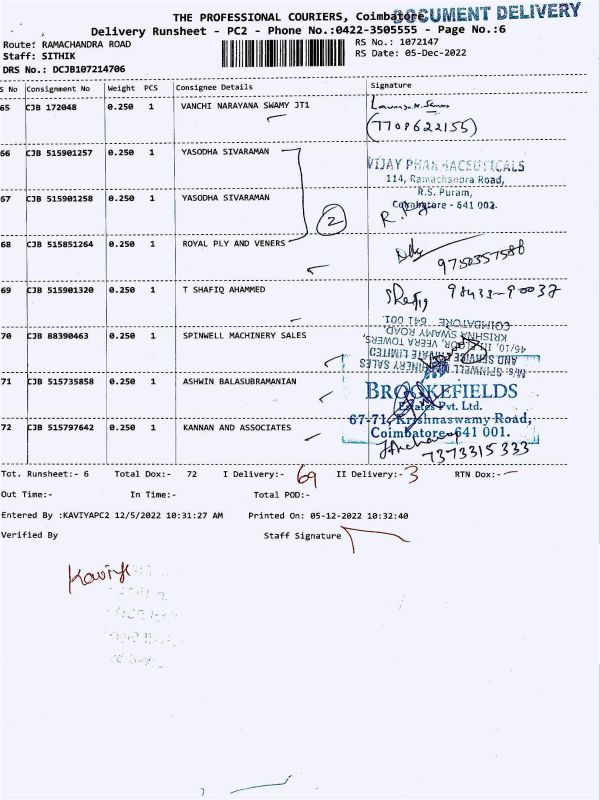 THE PROFESSIONAL COURIERS, Coimbatore
DOCUMENT DELIVERY
Delivery Runsheet - PC2 - Phone No.:0422-3505555 - Page No.:6
Route: RAMACHANDRA ROAD
RS No.: 1072147
Staff: SITHIK
RS Date: 05-Dec-2022
DRS No.: DCJB107214706
S No Consignment No Weight PCS Consignee Details Signature
65 CJB 172048 0.250 1 VANCHI NARAYANA SWAMY JT1
(7708622155)
66 CJB 515901257 0.250 1 YASODHA SIVARAMAN
VIJAY PHARMACEUTICALS
114, Ramachandra Road,
R.S. Puram,
Coimbatore - 641 002.
67 CJB 515901258 0.250 1 YASODHA SIVARAMAN
2
68 CJB 515851264 0.250 1 ROYAL PLY AND VENERS
9750357588
69 CJB 515901320 0.250 1 T SHAFIQ AHAMMED
Shafiq 98433-90037
70 CJB 88390463 0.250 1 SPINWELL MACHINERY SALES
M/s SPINWELL MACHINERY SALES
AND SERVICE PRIVATE LIMITED
46/10, III FLOOR, VEERA TOWERS,
KRISHNA SWAMY ROAD,
COIMBATORE - 641 001.
71 CJB 515735858 0.250 1 ASHWIN BALASUBRAMANIAN
BROOKEFIELDS
Estates Pvt. Ltd.
67-71, Krishnaswamy Road,
Coimbatore-641 001.
72 CJB 515797642 0.250 1 KANNAN AND ASSOCIATES
7373315333
Tot. Runsheet:- 6 Total Dox:- 72 I Delivery:- 69 II Delivery:- 3 RTN Dox:- -
Out Time:- In Time:- Total POD:-
Entered By :KAVIYAPC2 12/5/2022 10:31:27 AM Printed On: 05-12-2022 10:32:40
Verified By Staff Signature
Kaviya